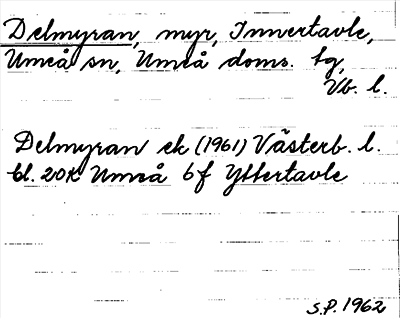 Delmyran, myr, Innertavle,
Umeå sn, Umeå doms. tg,
Vb. l.
Delmyran ek (1961) Västerb. l.
bl. 20K Umeå 6f Yttertavle
S.P. 1962